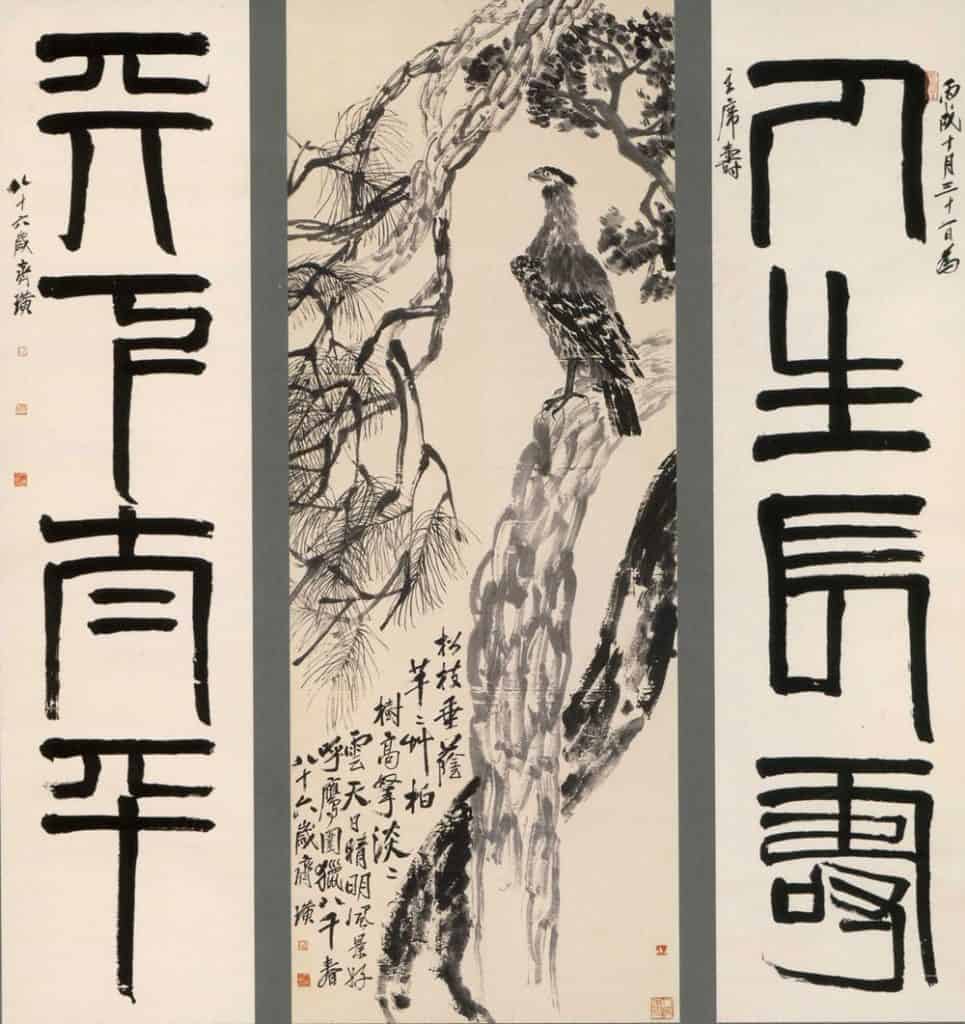 丙戌十月三十一日為
人生長壽
主席壽
松枝垂蔭
芊々艸柏
樹高擎淡々
雲天日晴明風景好
呼鷹圍獵八千春
八十六歲齊璜
天下太平
八十六歲齊璜